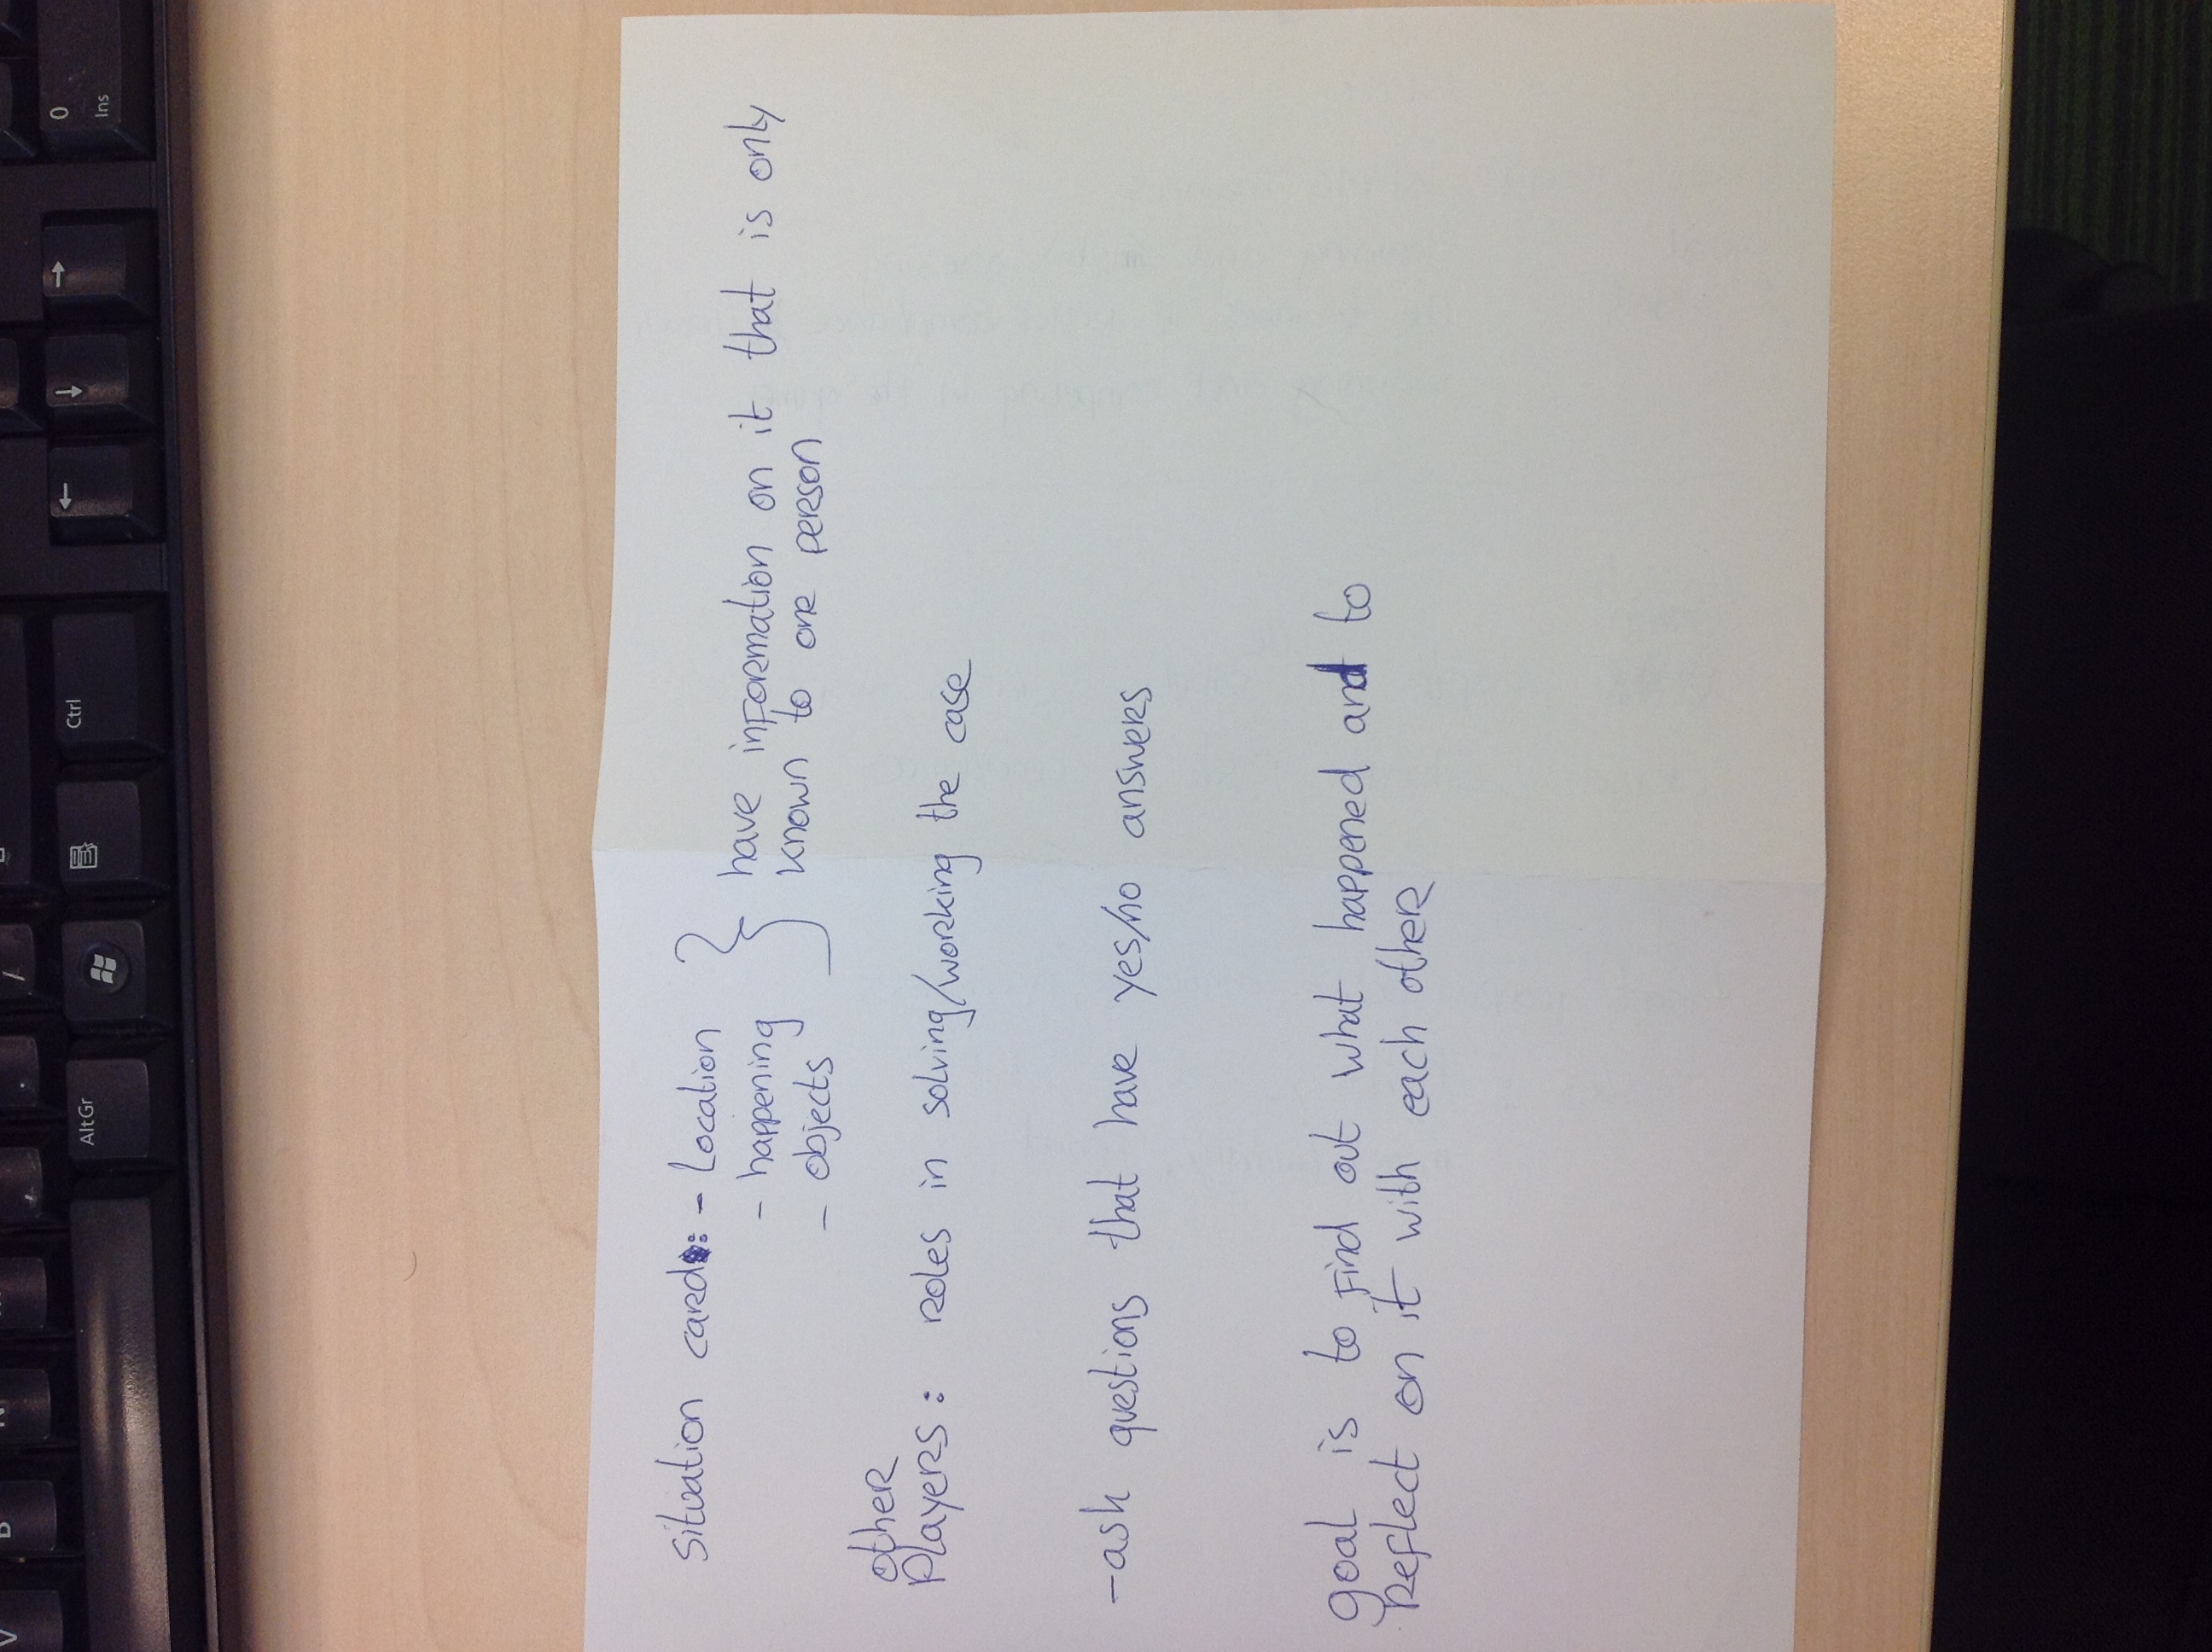 V B N M , . /
AltGr Ctrl ← ↓ → 0
Ins
Situation card: - Location
- happening
- objects
} have information on it that is only
known to one person
other
Players: roles in solving/working the case
-ask questions that have yes/no answers
goal is to find out what happened and to
reflect on it with each other